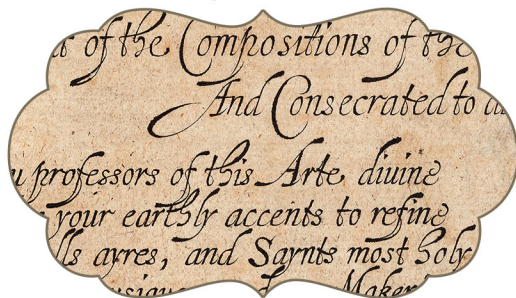 of the Compositions of the
And Consecrated to
professors of this Arte divine
your earthly accents to refine
ayres, and Saynts most holy
Maker